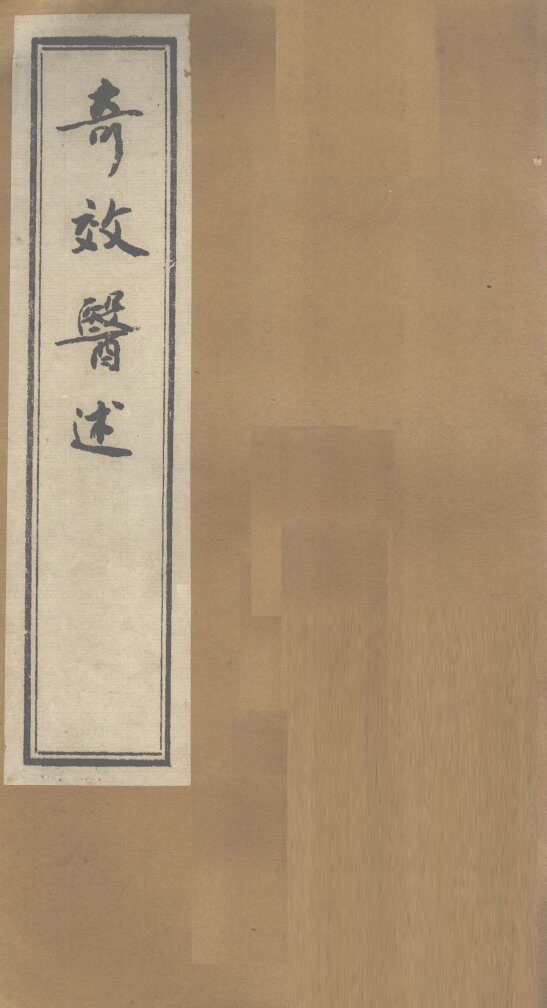 奇效醫述